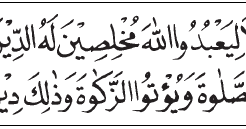 لِيَعْبُدُوا اللهَ مُخْلِصِيْنَ لَهُ الدِّيْنَ
الصَّلٰوةَ وَيُؤْتُوا الزَّكٰوةَ وَذٰلِكَ دِيْنُ